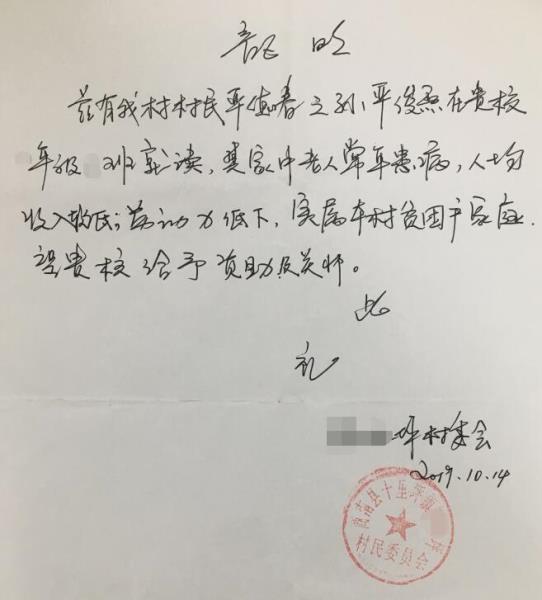 证明
兹有我村村民平德春之孙平俊杰在贵校
年级 班就读，其家中老人常年患病，人均
收入较低；劳动力低下，实属本村贫困户家庭.
望贵校给予资助及关怀。
此
礼
坪村委会
2019.10.14
县十里坪镇
村民委员会